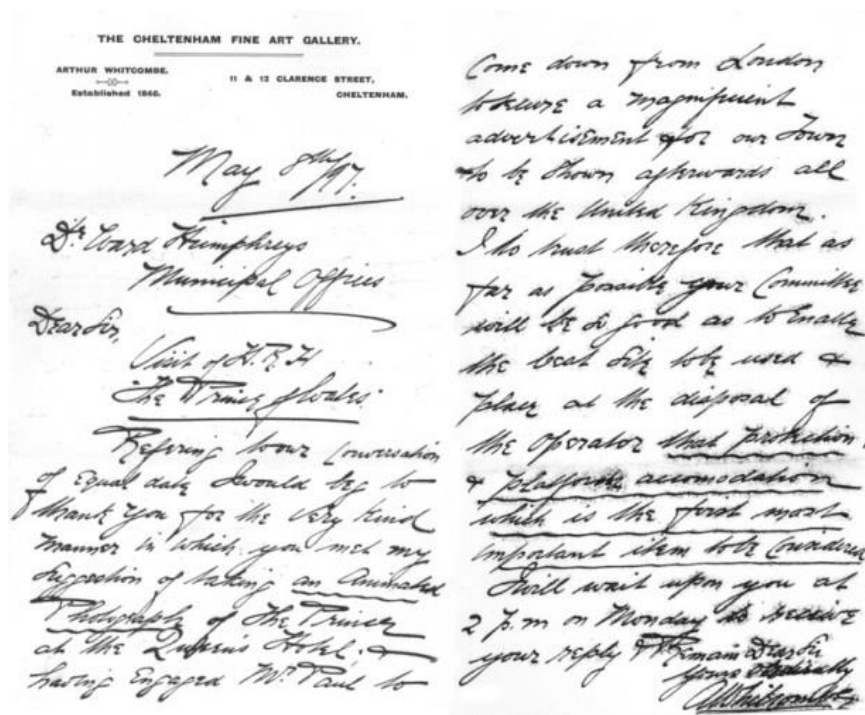 THE CHELTENHAM FINE ART GALLERY.
ARTHUR WHITCOMBE.
Established 1846.
11 & 12 CLARENCE STREET,
CHELTENHAM.
May 8th/97.
Dr Ward Humphreys
Municipal Offices
Dear Sir,
Visit of H.R.H
The Prince of Wales.
Refering to our Conversation
of Equal date I would beg to
thank you for the very kind
manner in which you met my
Suggestion of taking an Animated
Photograph of The Prince
at the Queen's Hotel &
having Engaged Mr. Paul to
Come down from London
to secure a magnificent
advertisement for our Town
to be shown afterwards all
over the United Kingdom.
I do trust therefore that as
far as possible your Committee
will be so good as to Enable
the best site to be used &
place at the disposal of
the Operator that protection
& platform accomodation
which is the first most
important item to be Considered
I will wait upon you at
2 p.m on Monday to receive
your reply & Remain Dear Sir
Yours
AWhitcombe